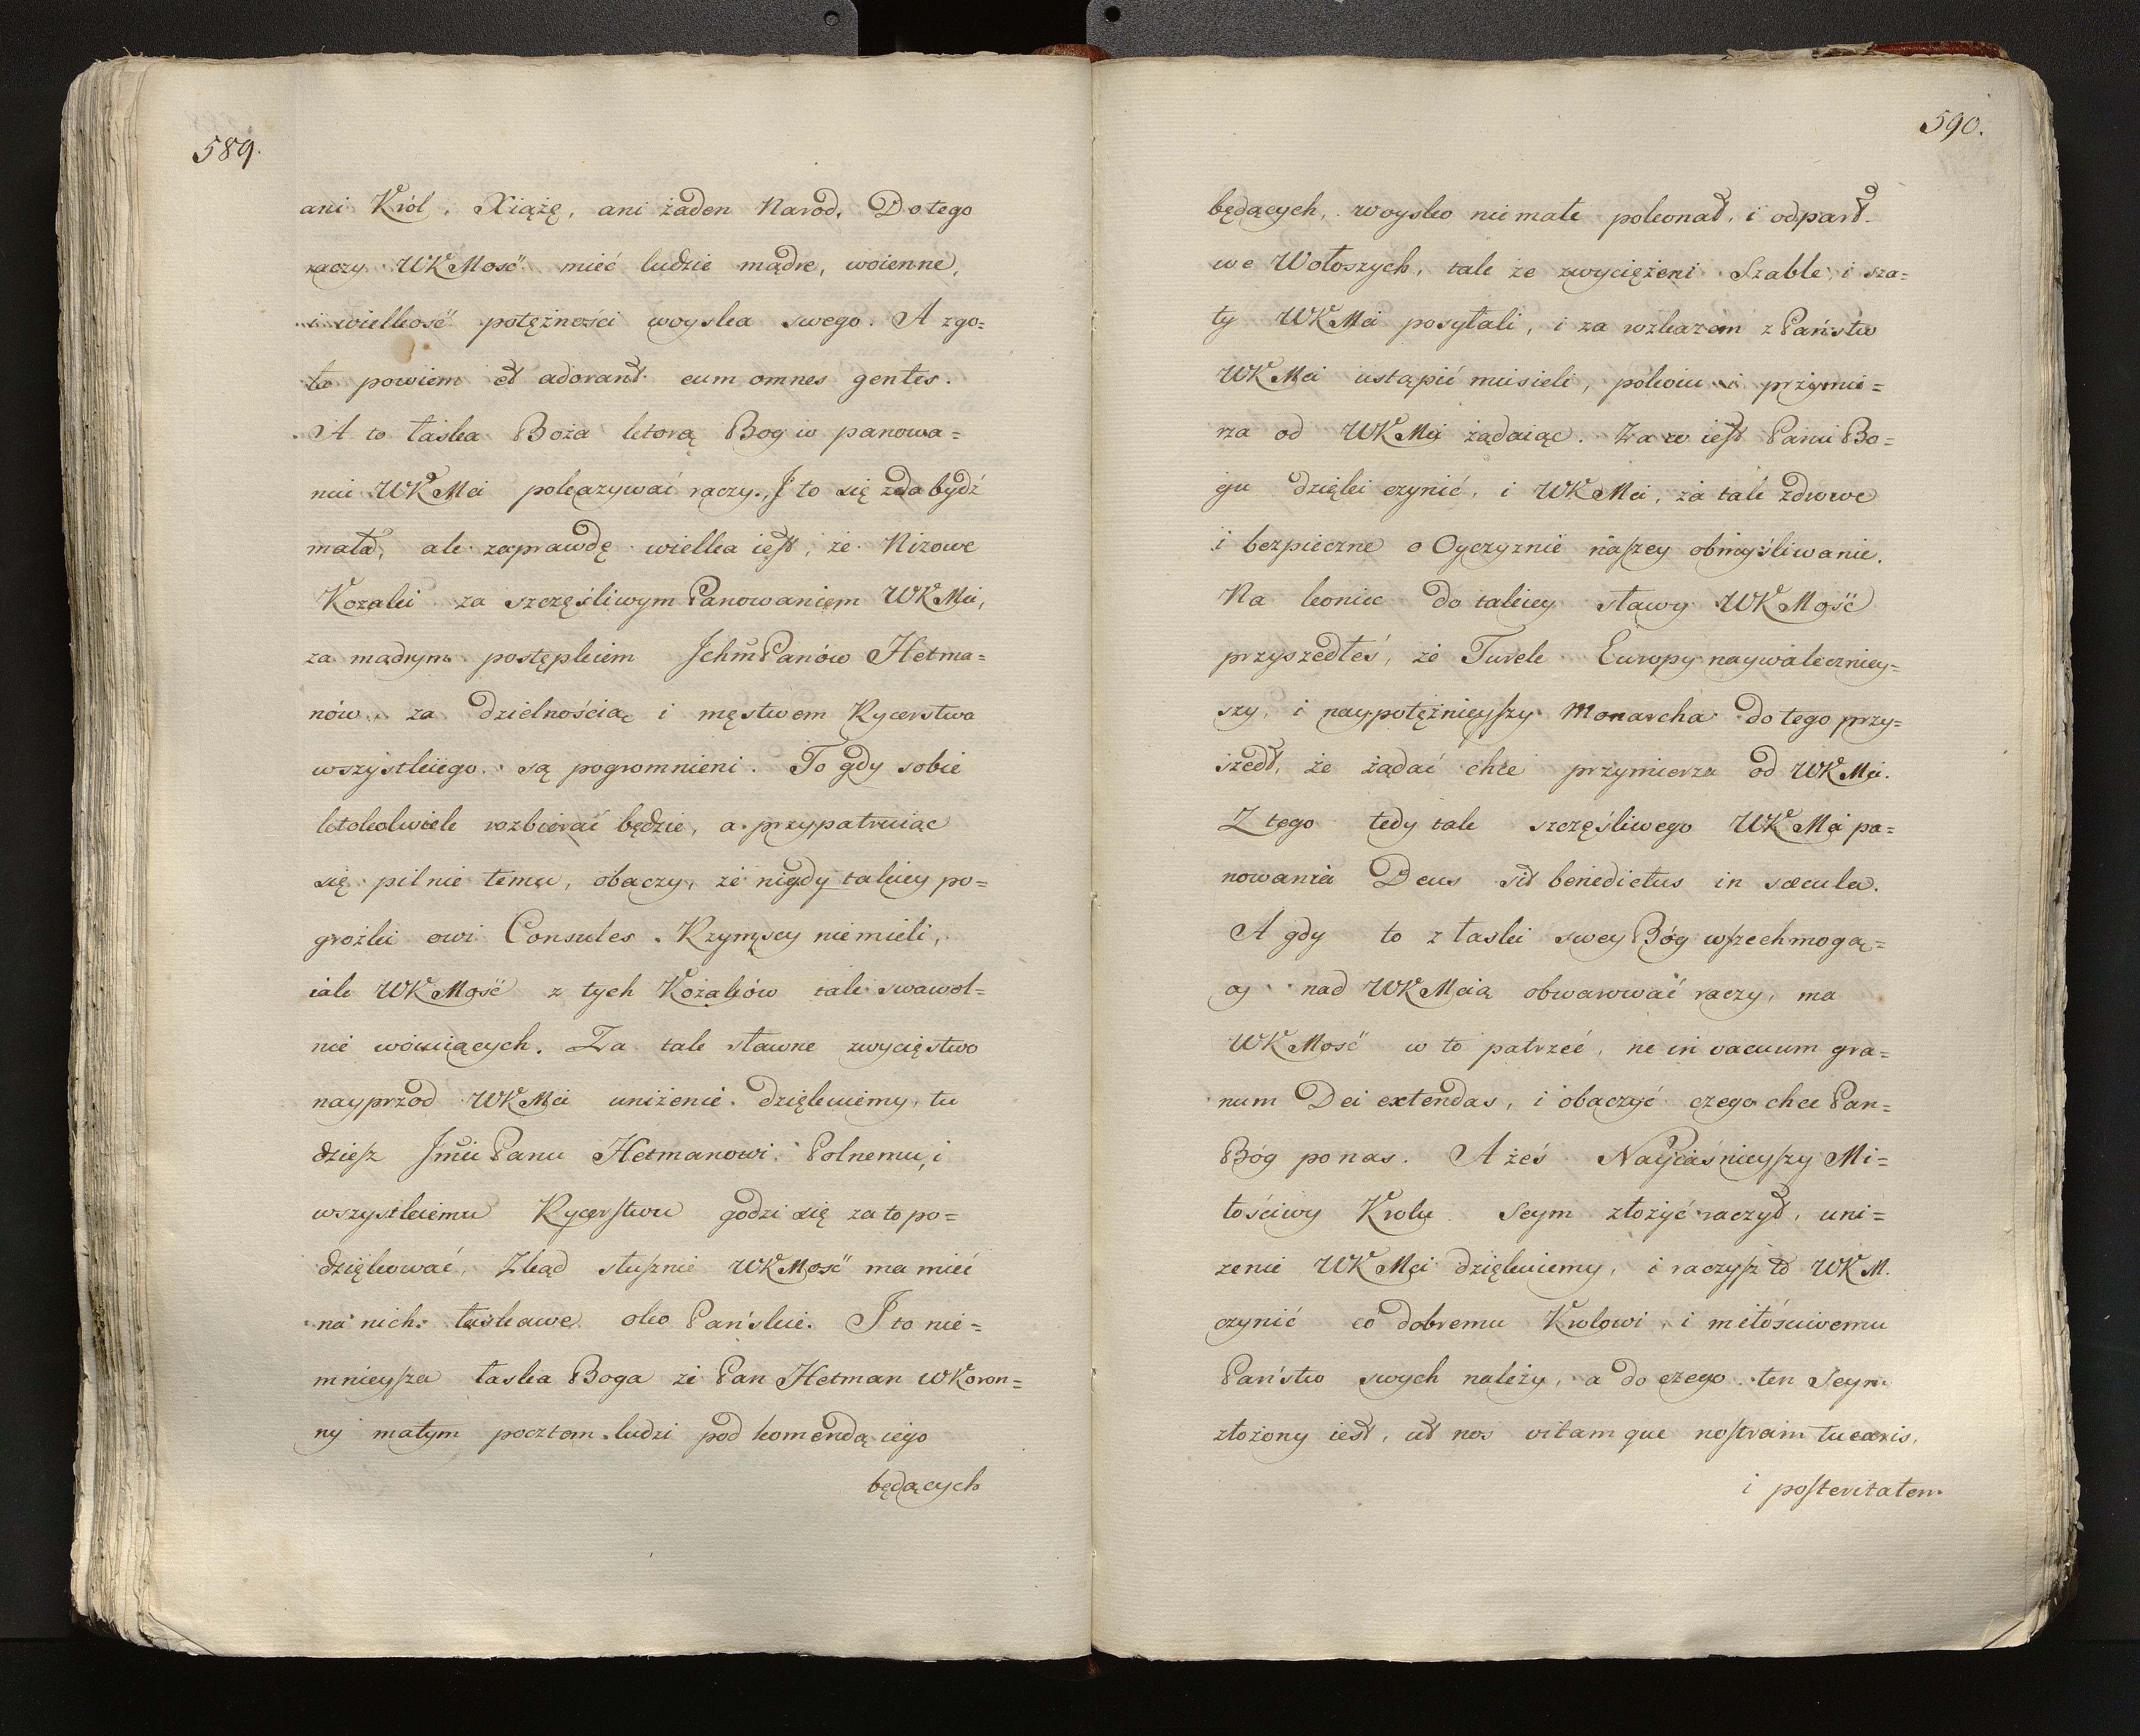 589.
ani Król, Xiążę, ani żaden Narod. Do tego
raczy WKMość mieć ludzie mądre, woienne,
i wielkość potężności woyska swego. A zgo=
ła powiem et adorant eum omnes gentes.
A to łaska Boża ktorą Bog w panowa=
niu WKMci pokazywać raczy. I to się zda bydź
mała, ale zaprawdę wielka iest, że Nizowe
Kozaki za szczęśliwym Panowaniem WKMci,
za mądrym postępkiem Ichm Panów Hetma=
nów, za dzielnością i męstwem Rycerstwa
wszystkiego są pogromnieni. To gdy sobie
ktokolwiek rozbierać będzie, a przypatruiąc
się pilnie temu, obaczy, że nigdy takiey po=
grożki owi Consules Rzymscy niemieli,
iak WKMość z tych Kozaków tak swawol=
nie woiuiących. Za tak sławne zwycięstwo
nayprzod WKMci uniżenie dziękuiemy, tu
dziesz Jmci Panu Hetmanowi Polnemu, i
wszystkiemu Rycerstwu godzi się za to po=
dziękować. Zkąd słusznie WKMość ma mieć
na nich łaskawe oko Pańskie. I to nie=
mnieysza łaska Boga że Pan Hetman WKoron=
ny małym pocztem ludzi pod komendą iego
będących
590.
będących, woysko nie małe pokonał, i odparł
we Wołoszych, tak że zwyciężeni Szable i sza=
ty WKMci posyłali, i za rozkazem z Państw
WKMci ustąpić musieli, pokoiu i przymie=
rza od WKMci żądaiąc. Za co iest Panu Bo=
gu dzięki czynić, i WKMci, za tak zdrowe
i bezpieczne o Oyczyznie naszey obmyśliwanie.
Na koniec do takiey sławy WKMość
przyszedłeś, że Turek Europy naywaleczniey=
szy, i naypotężnieyszy Monarcha do tego przy=
szedł, że żądać chce przymierza od WKMci.
Z tego tedy tak szczęśliwego WKMci pa=
nowania Deus sit benedictus in sæcula.
A gdy to z łaski swey Bóg wszechmogą=
cy nad WKMcią obwarować raczy, ma
WKMość w to patrzeć, ne in vacuum gra=
num Dei extendas, i obaczyć czego chce Pan=
Bóg po nas. A żeś Nayiaśnieyszy Mi=
łościwy Krolu Seym złożyć raczył, uni=
zenie WKMci dziękuiemy, i raczysz to WKM.
czynić co dobremu Krolowi, i miłościwemu
Państw swych należy, a do czego ten Seym
złożony iest, ut nos vitam que nostram tuearis,
i posteritatem